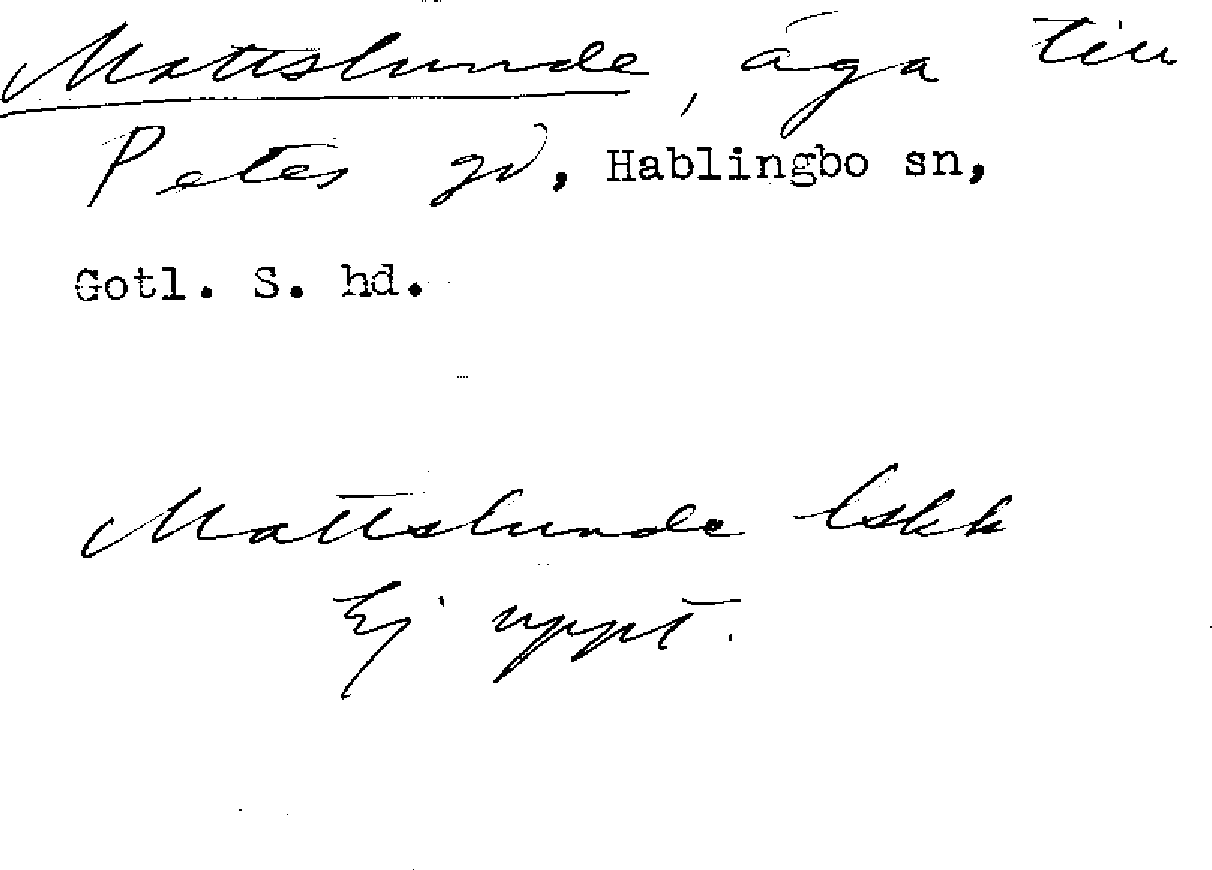 Mattslunde, äga till
Petes gd, Hablingbo sn,
Gotl. S. hd.
Mattslunde lskk
Ej uppt.